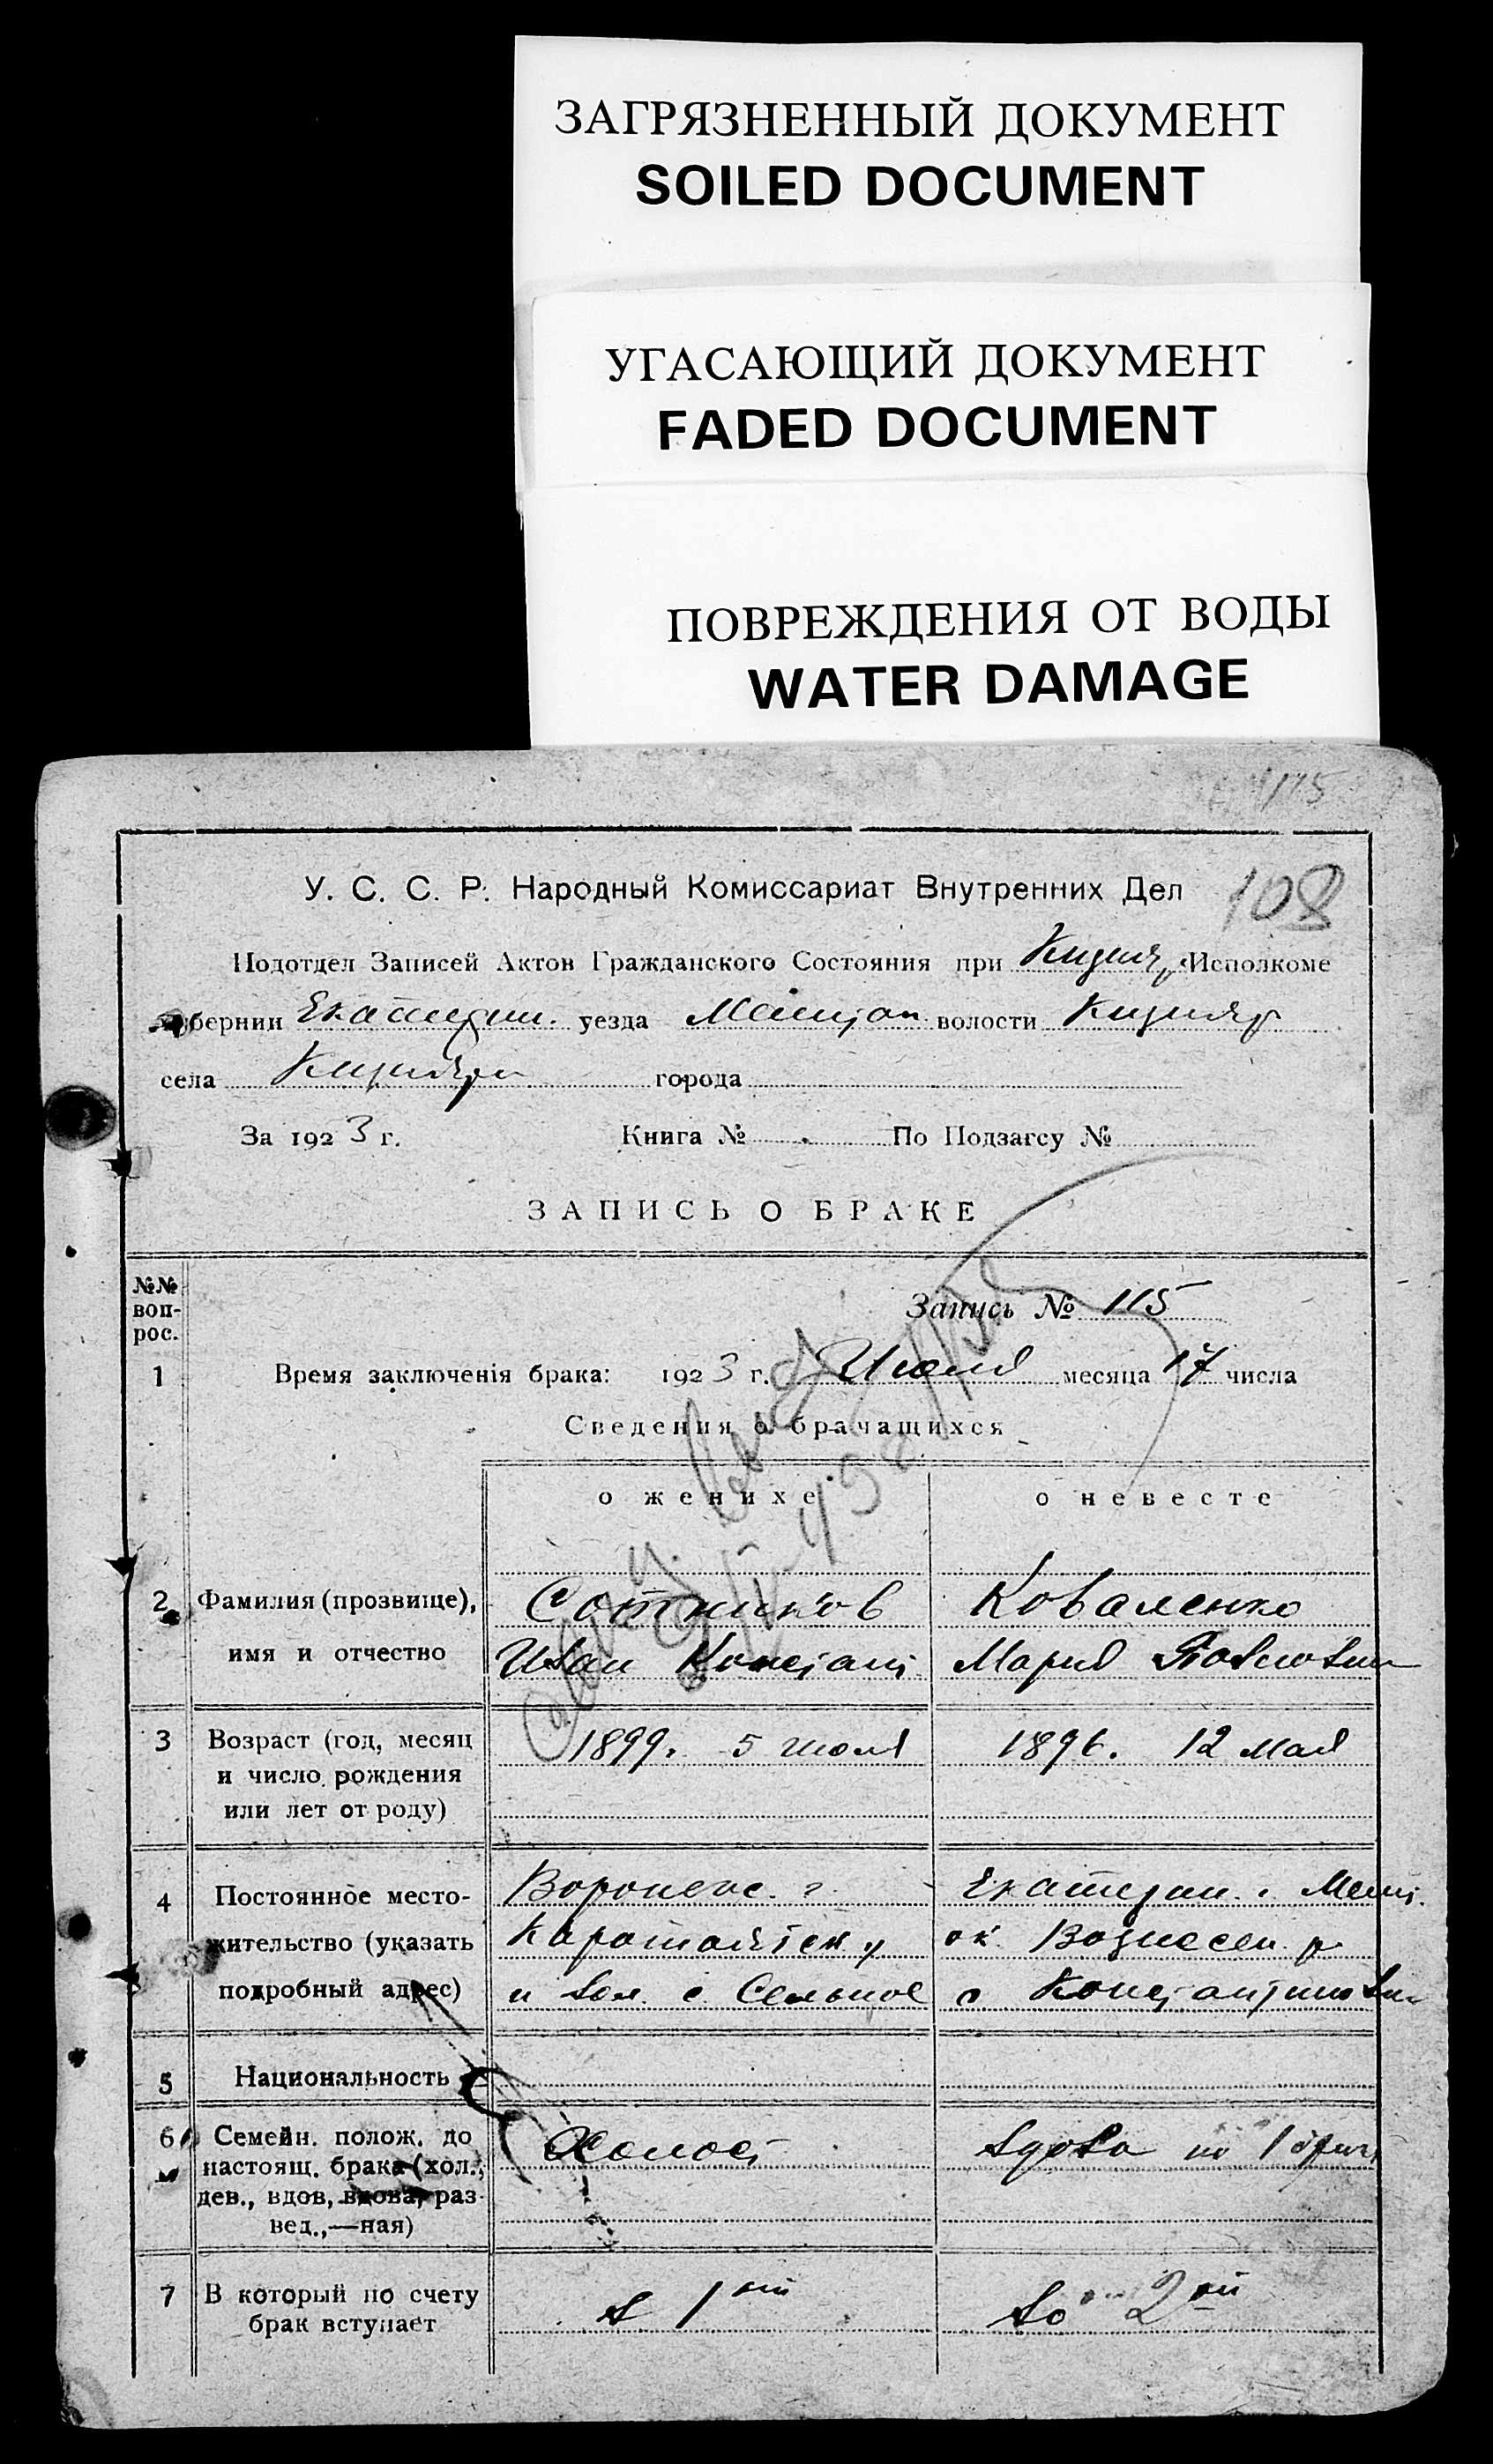 ЗАГРЯЗНЕННЫЙ ДОКУМЕНТ
SOILED DOCUMENT
УГАСАЮЩИЙ ДОКУМЕНТ
FADED DOCUMENT
ПОВРЕЖДЕНИЯ ОТ ВОДЫ
WATER DAMAGE
У. С. С. Р. Народный Комиссариат Внутренних Дел 108
Подотдел Записей Актов Гражданского Состояния при Кизияр. Исполкоме
бернии Екатерин. уезда волости Кизияр
села Кизияри города
За 1923 г. Книга № По Подзагсу №
ЗАПИСЬ О БРАКЕ
№№ воп-рос.
Запись № 115
1 Время заключенія брака: 1923 г. Июля месяца 17 числа
Сведения о брачащихся
о женихе о невесте
2 Фамилия (прозвище), Сотников Коваленко
имя и отчество Иван Констант Мария
3 Возраст (год, месяц 1899. 5 июля 1896. 12 мая
и число рождения
или лет от роду)
4 Постоянное место- Воронеж. г. Екатерин. г. Мелит.
жительство (указать ок. Вознесен. р
подробный адрес) и вол. с. Сельное с Константиновки
5 Национальность
6 Семейн. полож. до Холост вдова по 1 браку
настоящ. брака (хол.,
дев., вдов, вдова, раз-
вед.,—ная)
7 В который по счету в 1ый во 2ой
брак вступает